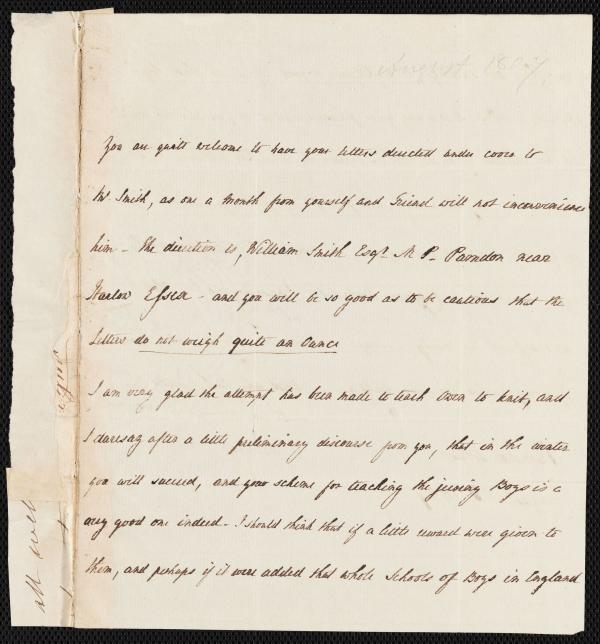 August 1807
You are quite welcome to have your Letters directed under cover to
Mr. Smith, as one a Month from yourself and Friend will not inconvenience
him - The direction is, William Smith Esqr. M P. Parndon near
Harlow Essex - and you will be so good as to be cautious that the
Letters do not weigh quite an Ounce
I am very glad the attempt has been made to teach Owen to knit, and
I daresay after a little preliminary discourse from you, that in the winter
you will succeed, and your scheme for teaching the Boys is a
very good one indeed - I should think that if a little reward were given to
them, and perhaps if it were added that whole Schools of Boys in England
all well